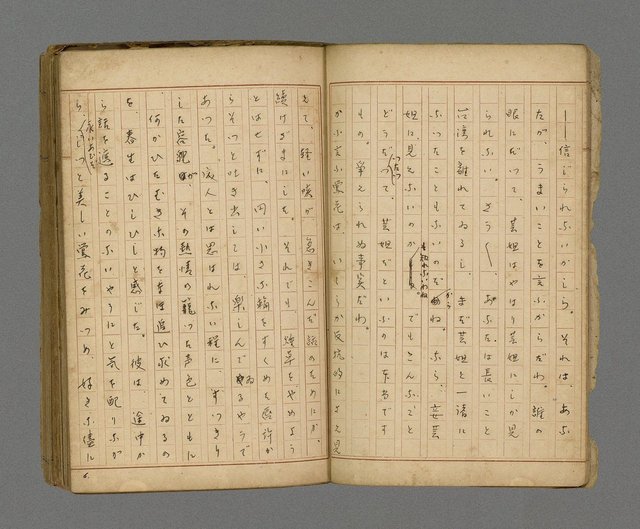 ――信じられないかしら。それは、あな
たが、うまいことを云ふからだわ。誰の
眼にだつて、芸妲はやはり芸妲にしか見
られない。さう――。あなたは長いこと
台湾を離れてゐるし、まだ芸妲と一緒に
なつたこともないのだから。なら、妾芸
妲に見えないのかも知れないわね。でもこんなこと
どうだつて。芸妲だといふのは本当です
もの。覚えられぬ事実だわ。
かなふ鶯花は、いくらか反抗的にさえ見
えて、軽い咳が、急きこんだ話のためにか、
続けざまにした。それでも、煙草をやめよう
とはせずに、円い小さな輪をすくめ
らそつと吐き出しては、楽しんでゐるやうで
あつた。成人とは思はれない程に、すつきり
した容貌が、その熱情の籠つた声色とともに
何かひたむきな物を追ひ求めてゐるの
を、春生はひしひしと感じた。彼は、途中か
ら話を遮ることのないやうにと気を配りなが
ら、永いあひだじつと美しい鶯花をみつめ、好きな儘に
6